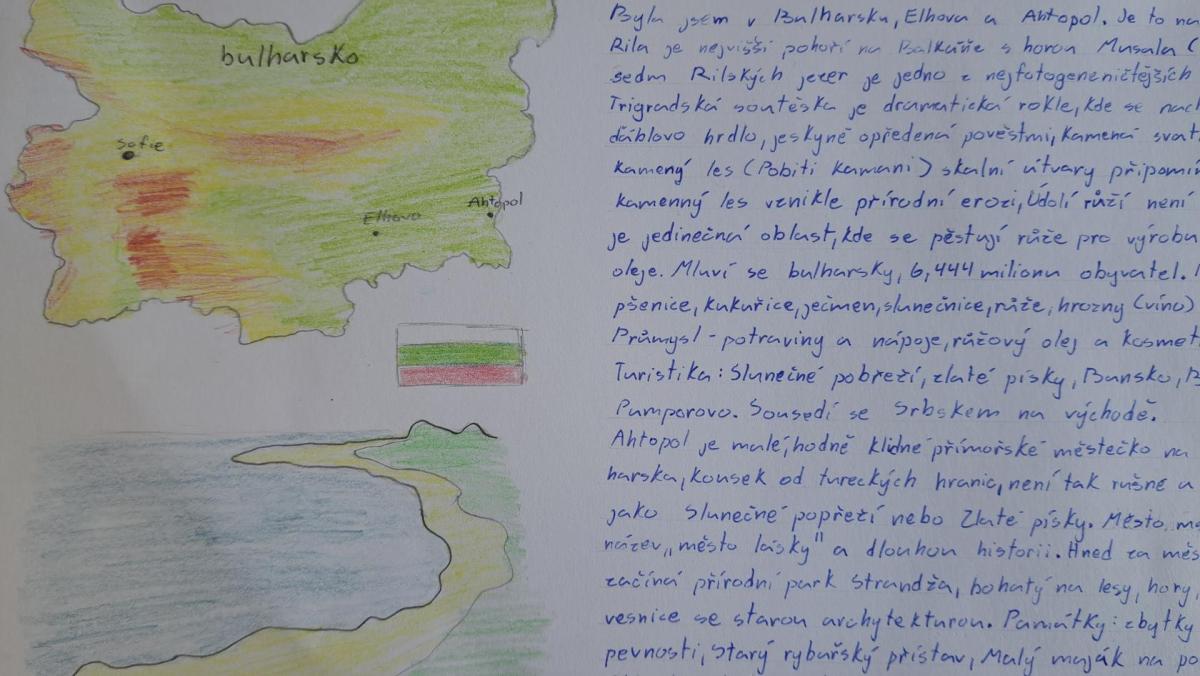 bulharsko
Sofie
Elhovo
Ahtopol
Byla jsem v Bulharsku, Elhova a Ahtopol. Je to na
Rila je nejvišší pohoří na Balkáňe s horou Musala (
sedm Rilských jezer je jedno z nejfotogeneničtějších
Trigradská soutěska je dramatická rokle, kde se nach
ďáblovo hrdlo, jeskyně opředená pověstmi, Kamená svat
kamený les (Pobiti Kamani) skalní útvary připomín
kamenný les vznikle přírodní erozi, Údolí růží není
je jedinečná oblast, kde se pěstují růže pro výrobu
oleje. Mluví se bulharsky, 6,444 milionu obyvatel.
pšenice, kukuřice, ječmen, slunečnice, růže, hrozny (víno)
Průmysl - potraviny a nápoje, růžový olej a kosmet
Turistika: Slunečné pobřeží, zlaté písky, Bansko, B
Pamporovo. Sousedí se Srbskem na východě.
Ahtopol je malé, hodně klidné přímořské městečko na
harska, kousek od tureckých hranic, není tak rušné a
jako Slunečné popřeží nebo Zlaté písky. Město ma
název „město lásky" a dlouhou historii. Hned za měs
začíná přírodní park Strandža, bohatý na lesy, hory,
vesnice se starou archytekturou. Památky: zbytky
pevnosti, Starý rybářský přístav, Malý maják na po